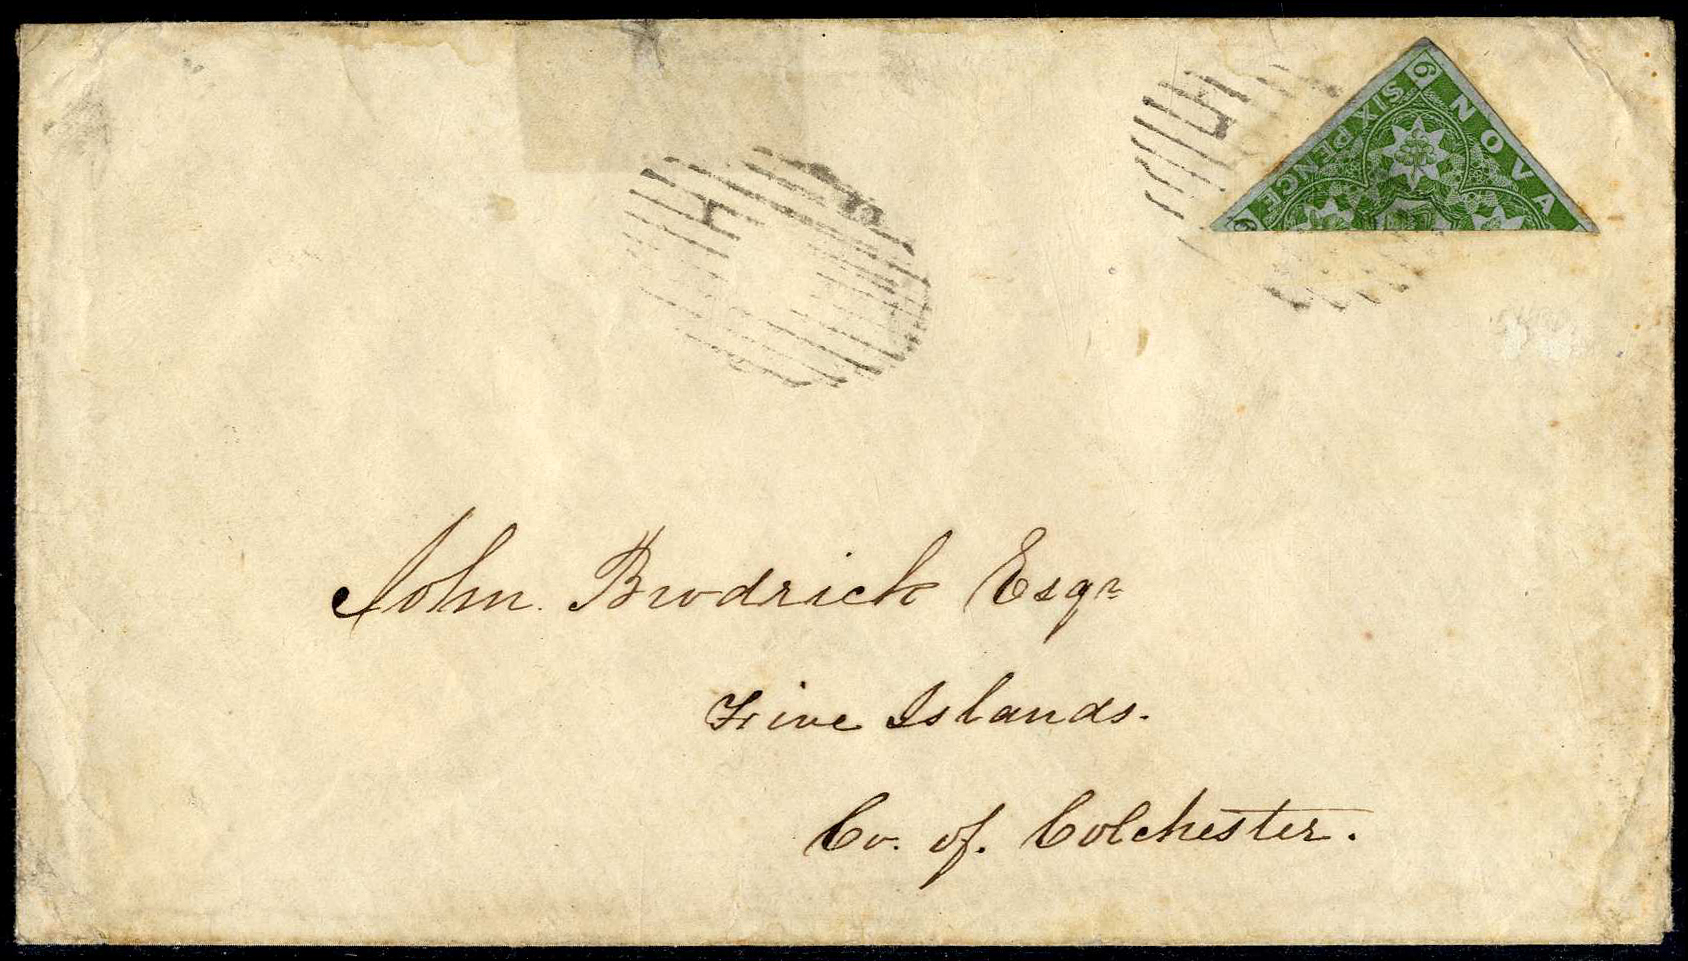 6
NOVA
SIX PENCE
6
H
H
John Brodrick Esqr
Five Islands.
Co. of. Colchester.